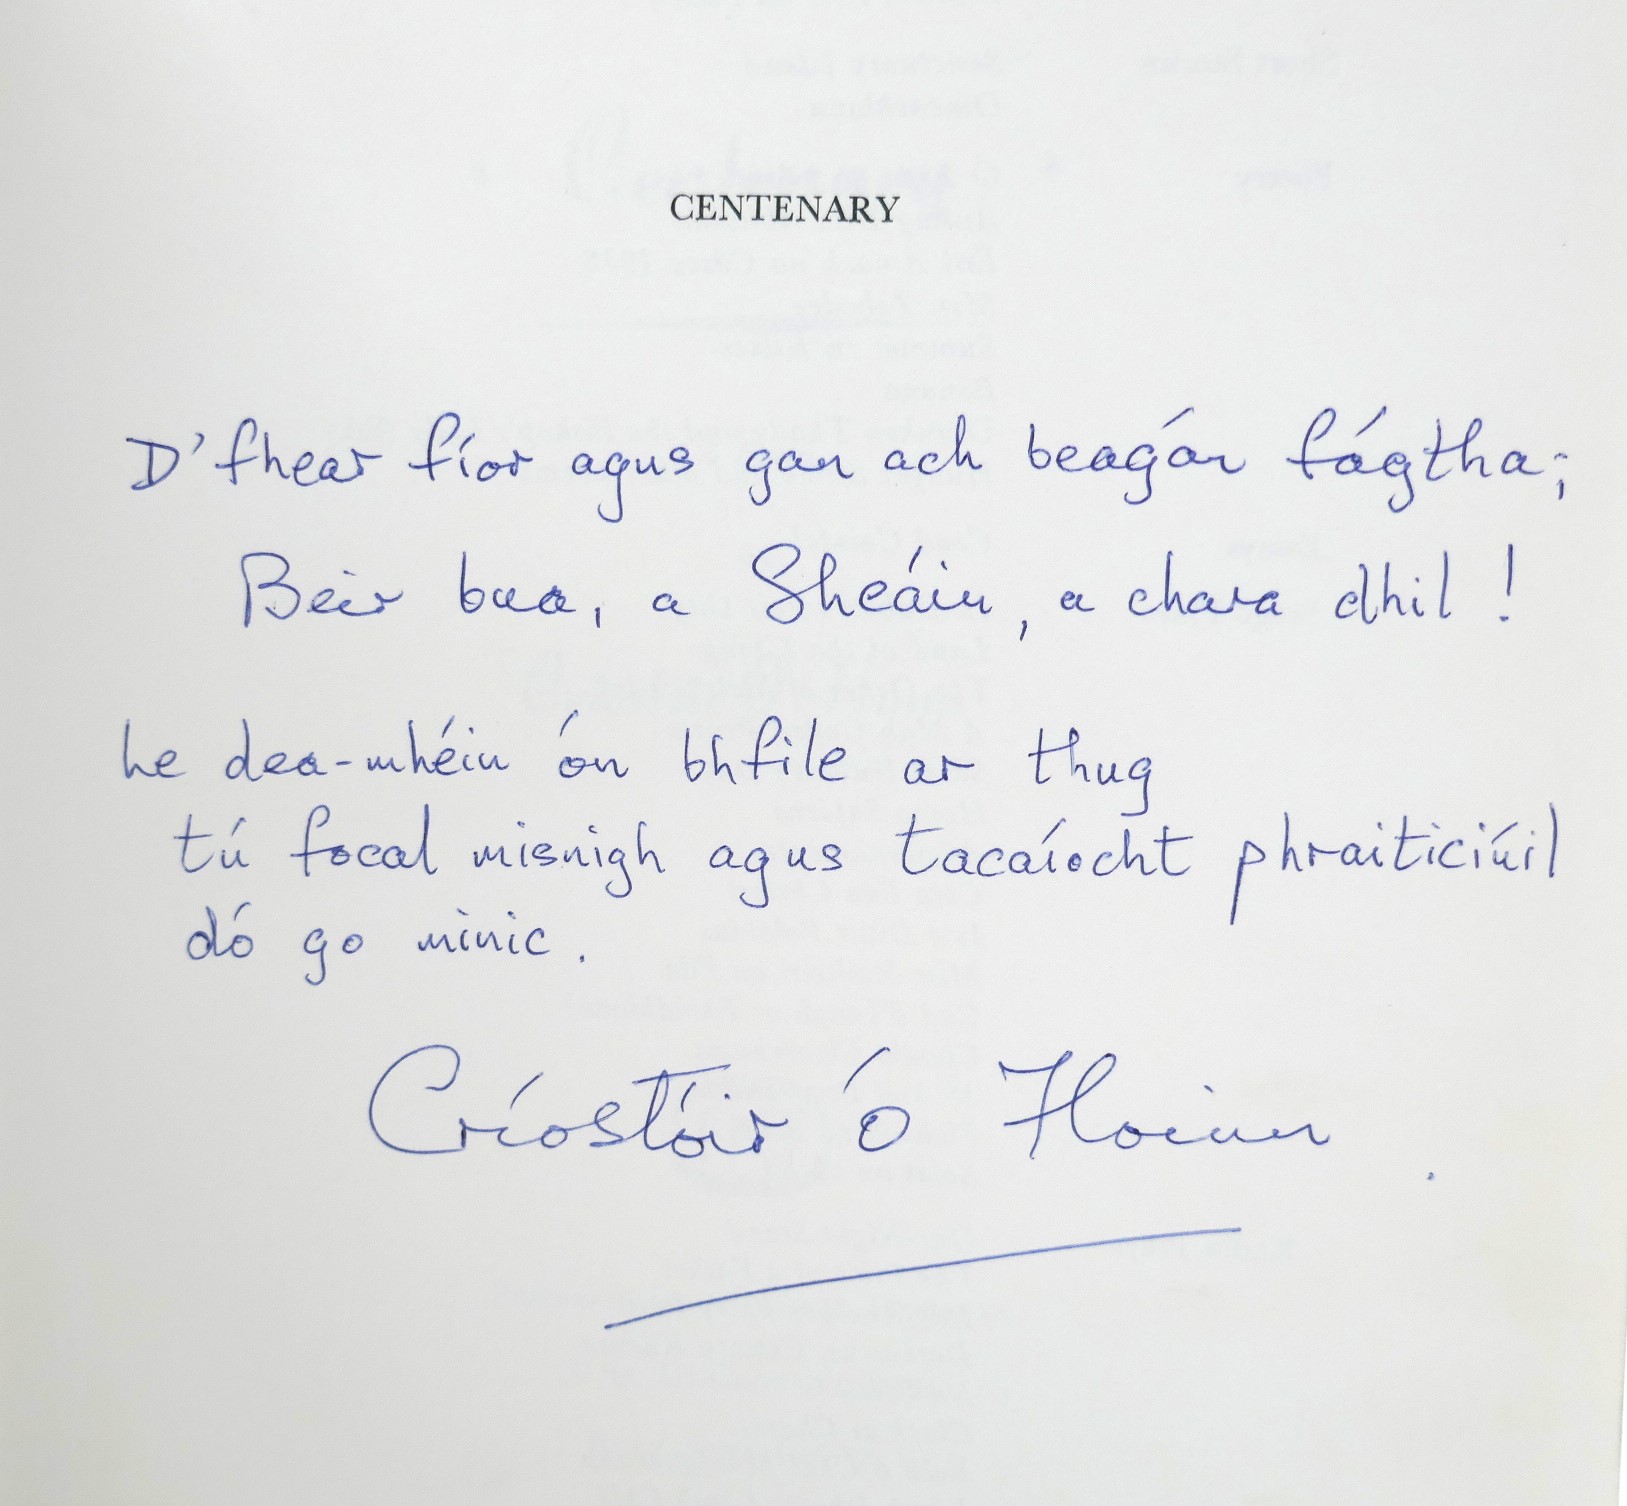 CENTENARY
D'fhear fíor agus gan ach beagán fágtha;
Beir bua, a Sheáin, a chara dhil!
Le dea-mhéin ón bhfile ar thug
tú focal misnigh agus tacaíocht phraiticiúil
dó go minic.
Críostóir Ó Floinn.